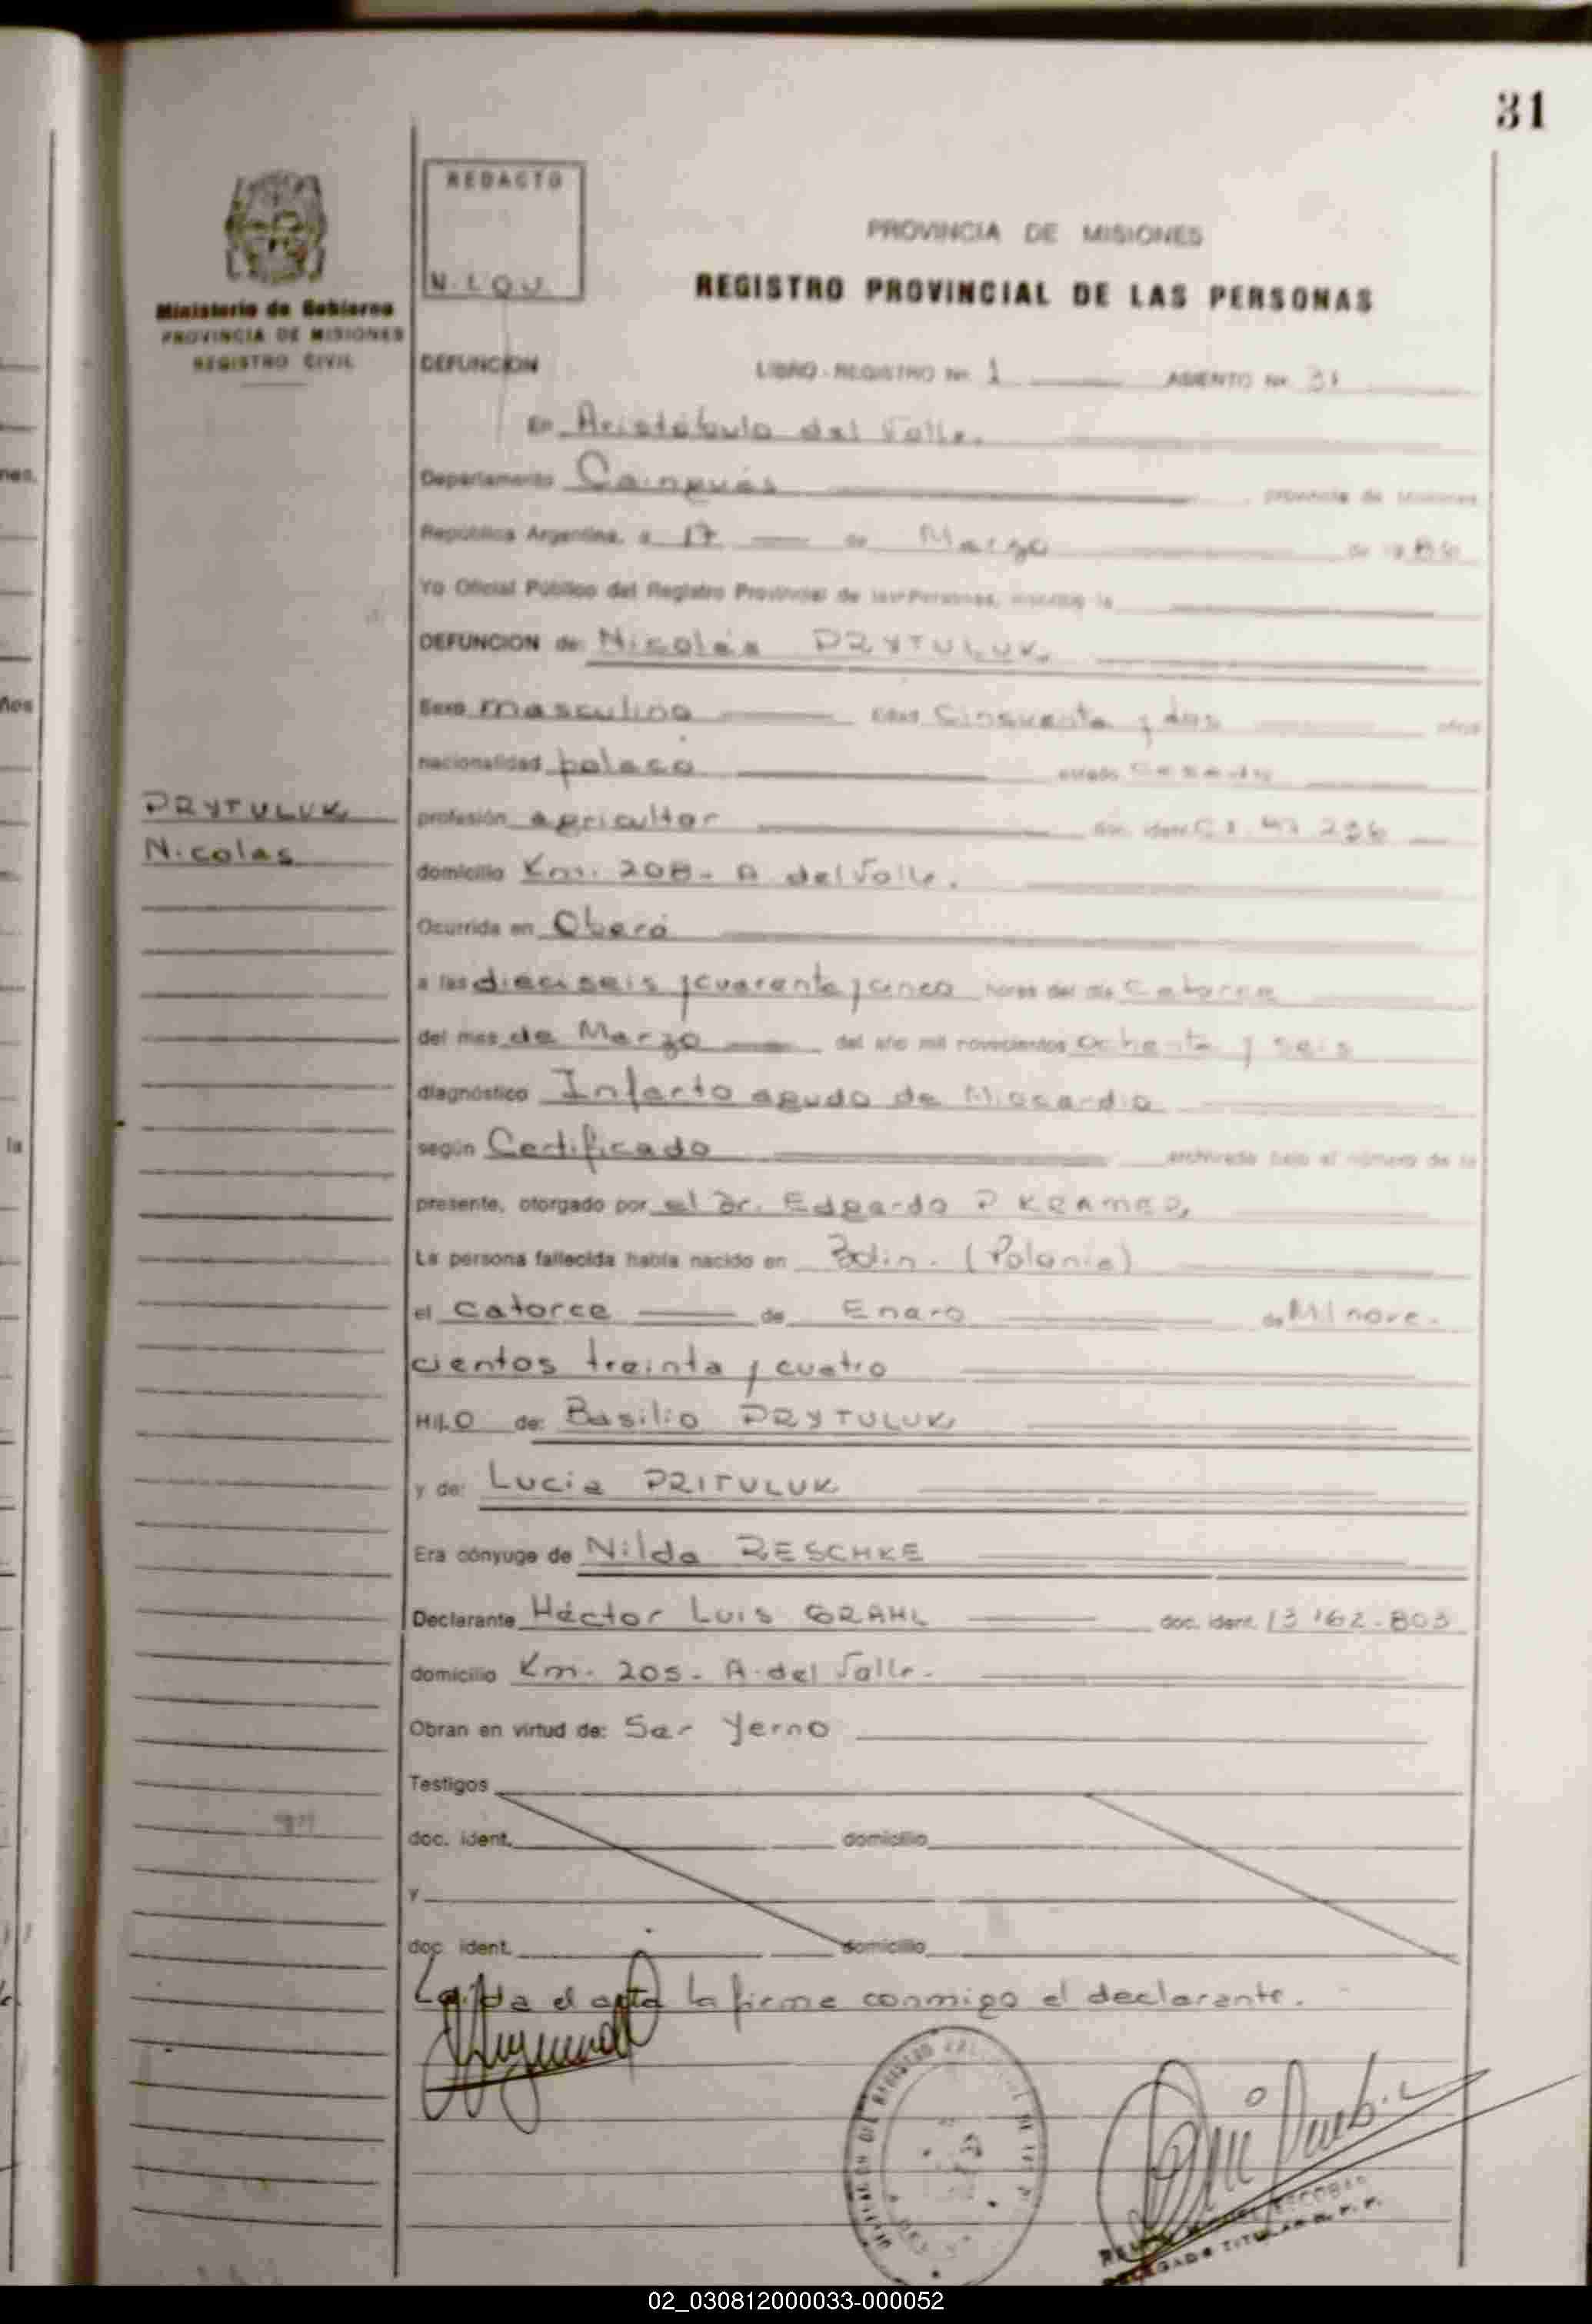 31
REDACTO
N. LQU.
Ministerio de Gobierno
PROVINCIA DE MISIONES
REGISTRO CIVIL
PROVINCIA DE MISIONES
REGISTRO PROVINCIAL DE LAS PERSONAS
DEFUNCION LIBRO - REGISTRO Nº. 1 ASIENTO Nº. 31
En Aristóbulo del Valle.
Departamento Cainguás provincia de Misiones
República Argentina, a 17 de Marzo de 1986
Yo Oficial Público del Registro Provincial de las Personas, inscribo la
DEFUNCION de: Nicolás PRYTULUK
Sexo masculino edad Cincuenta y dos años
nacionalidad polaco estado Casado
PRYTULUK
Nicolas
profesión agricultor doc. ident. C I. 47 296
domicilio Km. 208 - A del Valle.
Ocurrida en Oberá
a las dieciseis y cuarenta y cinco horas del día Catorce
del mes de Marzo del año mil novecientos ochenta y seis
diagnóstico Infarto agudo de Miocardio
según Certificado archivado bajo el número de la
presente, otorgado por el Dr. Edgardo P KRAMER,
La persona fallecida había nacido en (Polonia)
el catorce de Enero de Mil nove-
cientos treinta y cuatro
HIJO de: Basilio PRYTULUK
y de: Lucia PRITULUK
Era cónyuge de Nilda RESCHKE
Declarante Héctor Luis GRAHL doc. ident. 13 162-803
domicilio Km. 205 - A. del Valle.
Obran en virtud de: Ser Yerno
Testigos
doc. ident. domicilio
y
doc. ident. domicilio
Leída el acta la firma conmigo el declarante.
DELEGADO TITULAR R. P. P.
02_030812000033-000052